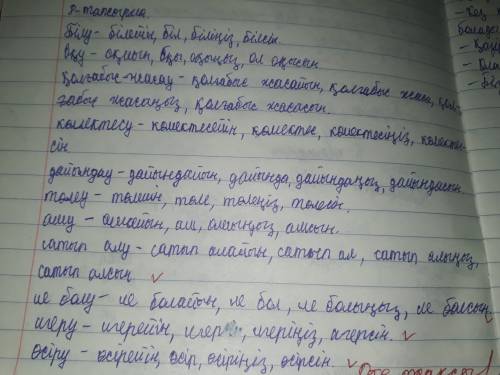 8-тапсырма.
білу - білейін, біл, біліңіз, білсін.
оқу - оқиын, оқы, оқыңыз, ол оқысын.
қолғабыс жасау - қолғабыс жасайын, қолғабыс жаса, қол-
ғабыс жасаңыз, қолғабыс жасасын.
көмектесу - көмектесейін, көмектес, көмектесіңіз, көмектес-
сін
дайындау - дайындайын, дайында, дайындаңыз, дайындасын.
төлеу - төлейін, төле, төлеңіз, төлесін.
алу - алайын, ал, алыңыз, алсын.
сатып алу - сатып алайын, сатып ал, сатып алыңыз,
сатып алсын
ие болу - ие болайын, ие бол, ие болыңыз, ие болсын.
игеру - игерейін, игер, игеріңіз, игерсін.
өсіру - өсірейін, өсір, өсіріңіз, өсірсін.
Өте жақсы!